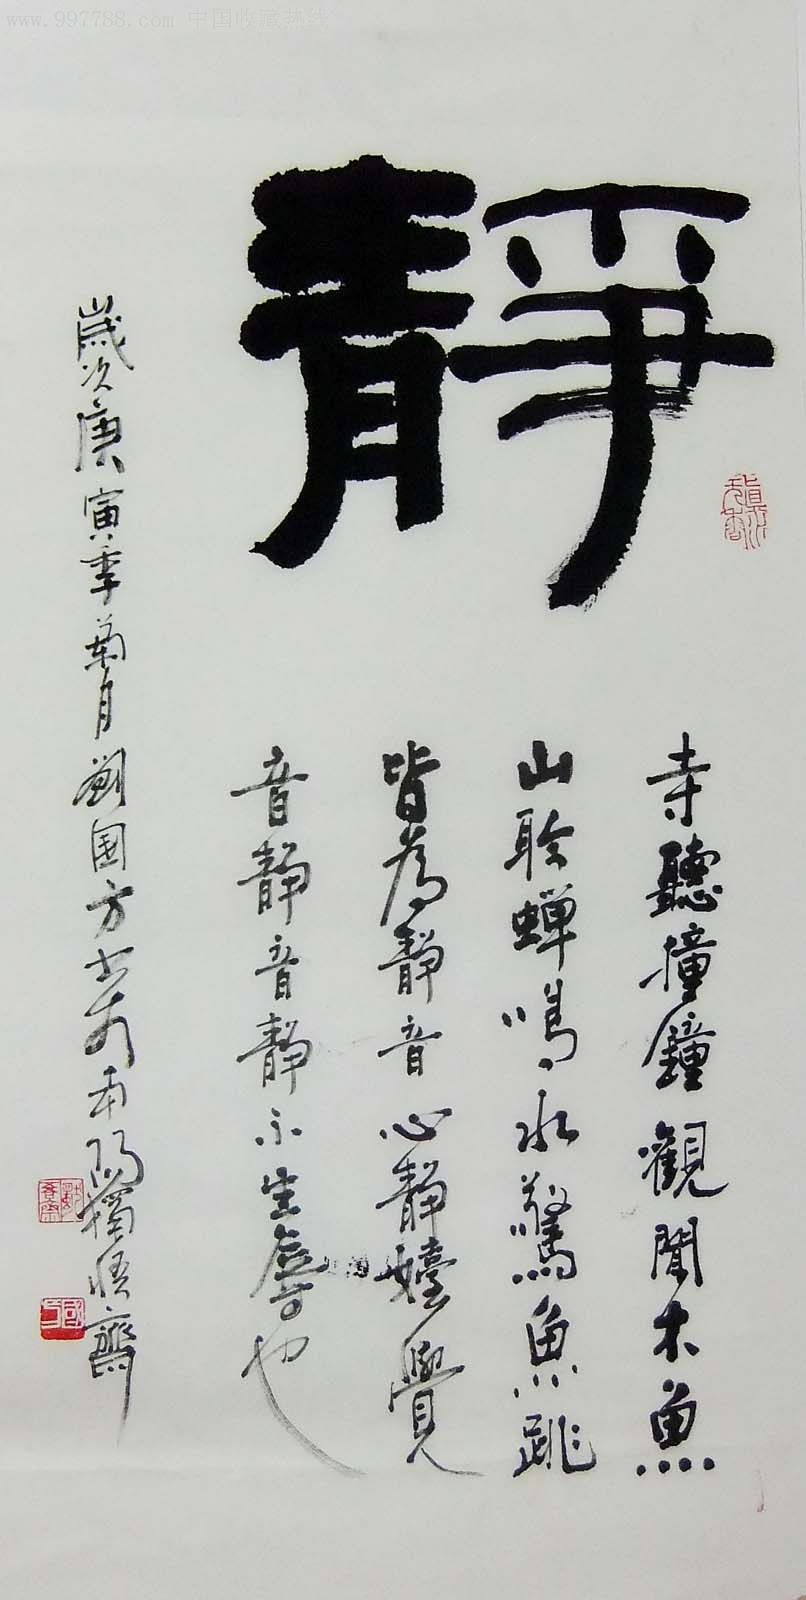 www.997788.com 中国收藏热线
靜
寺聽撞鐘觀聞木魚
山聆蝉鳴水驚魚跳
皆為靜音心靜嬑覺
音靜音靜不生辱也
歲次庚寅季菊月劉国方书於南阳獨悟齋